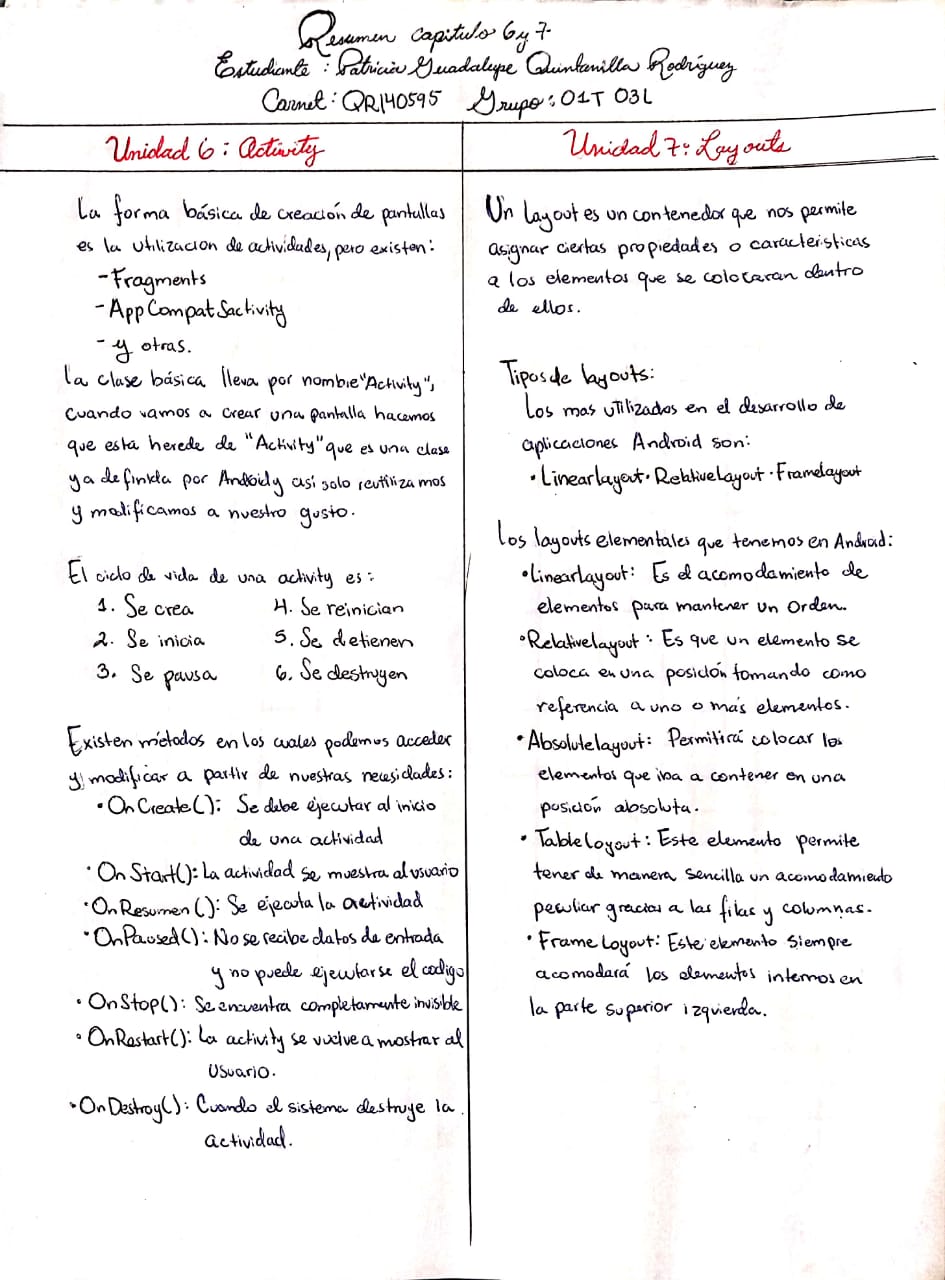 Resumen capitulo 6 y 7.
Estudiante : Patricia Guadalupe Quintanilla Rodríguez
Carnet: QR140595 Grupo: 01T 03L
Unidad 6 : Activity
La forma básica de creación de pantallas
es la utilización de actividades, pero existen:
- Fragments
- AppCompatSactivity
- y otras.
La clase básica lleva por nombre "Activity",
cuando vamos a crear una pantalla hacemos
que esta herede de "Activity" que es una clase
ya definida por Android y asi solo reutilizamos
y modificamos a nuestro gusto.
El ciclo de vida de una activity es :
1. Se crea 4. Se reinician
2. Se inicia 5. Se detienen
3. Se pausa 6. Se destruyen
Existen métodos en los cuales podemos acceder
y modificar a partir de nuestras necesidades:
• OnCreate(): Se debe ejecutar al inicio
de una actividad
• OnStart(): La actividad se muestra al usuario
• OnResumen(): Se ejecuta la actividad
• OnPaused(): No se recibe datos de entrada
y no puede ejecutarse el codigo
• OnStop(): Se encuentra completamente invisible
• OnRestart(): La activity se vuelve a mostrar al
usuario.
• OnDestroy(): Cuando el sistema destruye la
actividad.
Unidad 7: Layouts
Un layout es un contenedor que nos permite
asignar ciertas propiedades o características
a los elementos que se colocaran dentro
de ellos.
Tipos de layouts:
Los mas utilizados en el desarrollo de
aplicaciones Android son:
• Linearlayout • RelativeLayout • Framelayout
Los layouts elementales que tenemos en Android:
• Linearlayout: Es el acomodamiento de
elementos para mantener un orden.
• Relativelayout : Es que un elemento se
coloca en una posición tomando como
referencia a uno o más elementos.
• Absolutelayout: Permitirá colocar los
elementos que iba a contener en una
posición absoluta.
• TableLayout: Este elemento permite
tener de manera sencilla un acomodamiento
peculiar gracias a las filas y columnas.
• FrameLayout: Este elemento siempre
acomodará los elementos internos en
la parte superior izquierda.